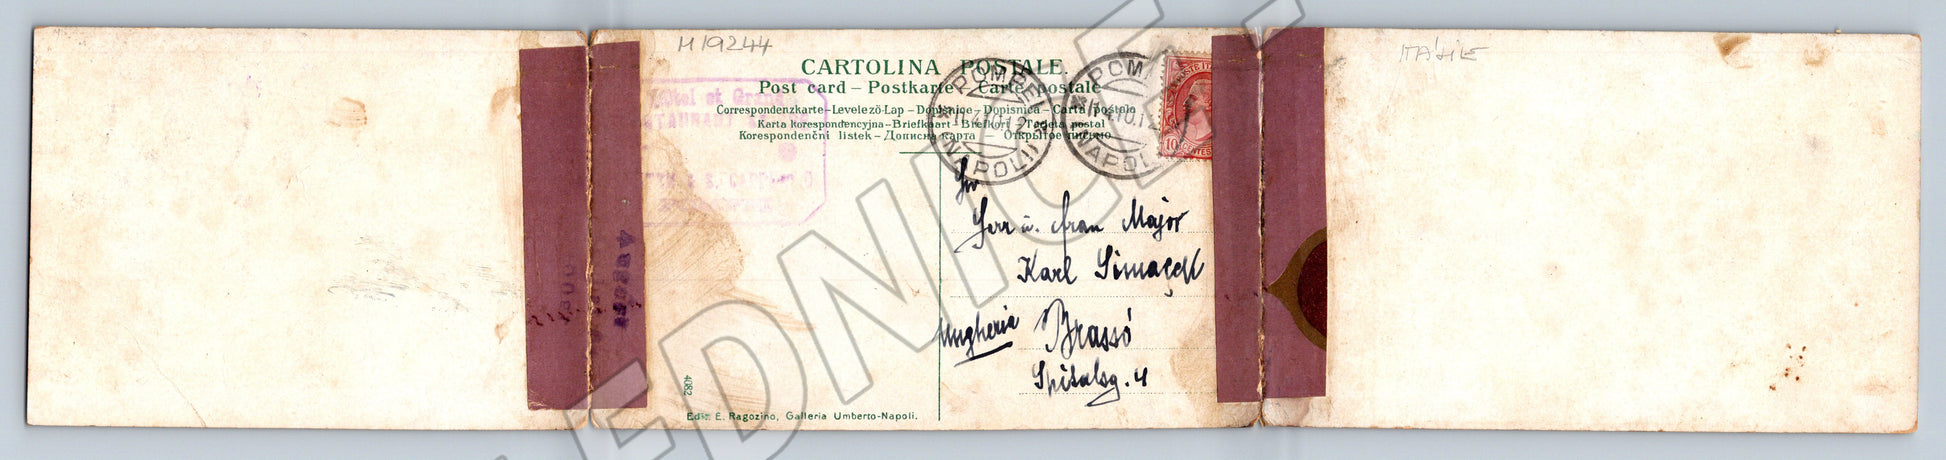 M19244
ITALIE
CARTOLINA POSTALE.
Post card – Postkarte – Carte postale
Correspondenzkarte – Levelező-Lap – Dopisnice – Dopisnica – Carta postala
Karta korespondencyjna – Briefkaart – Brefkort – Tarjeta postal
Korespondenční listek – Дописна карта – Открытое письмо
POMPEI
(NAPOLI)
POMPEI
(NAPOLI)
POSTE ITALIANE
10
Hôtel et Grand
RESTAURANT
Herr u. Frau Major
Karl
Ungheria Brassó
Spitalsg. 4
4082
Ediz. E. Ragozino, Galleria Umberto-Napoli.